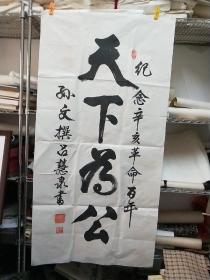 纪念辛亥革命百年
天下为公
孙文撰吕慧泉书